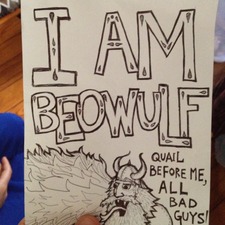 I AM
BEOWULF
QUAIL
BEFORE ME,
ALL
BAD
GUYS!